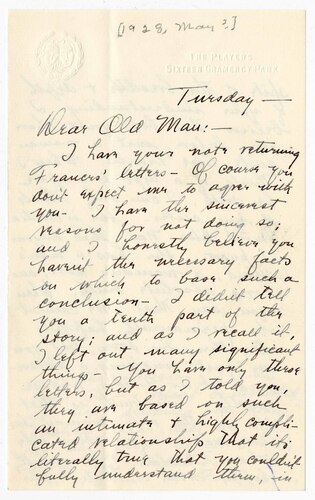 [1928, May?]
THE PLAYERS
SIXTEEN GRAMERCY PARK
Tuesday—
Dear Old Man:—
I have your note returning
Frances' letters— Of course you
don't expect me to agree with
you— I have the sincerest
reasons for not doing so;
and I honestly believe you
haven't the necessary facts
on which to base such a
conclusion— I didn't tell
you a tenth part of the
story; and as I recall it,
I left out many significant
things— You have only those
letters, but as I told you,
they are based on such
an intimate & highly compli-
cated relationship that it's
literally true that you couldn't
fully understand them, in